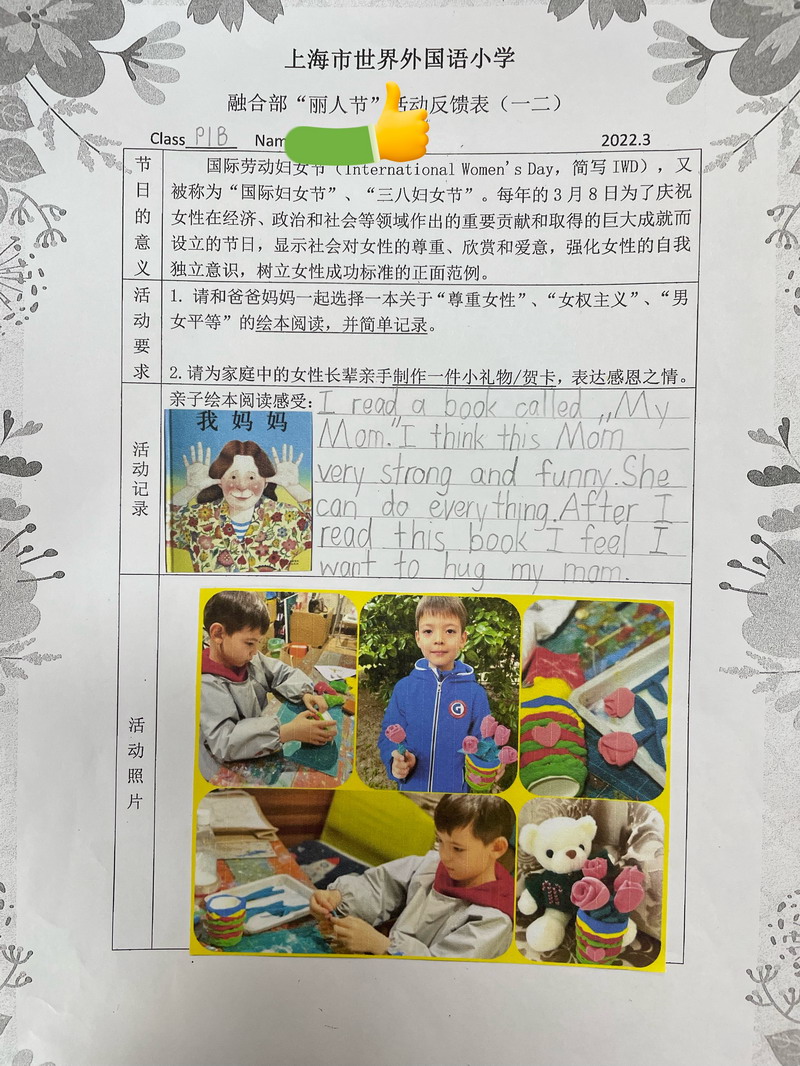 上海市世界外国语小学
融合部“丽人节”活动反馈表（一二）
Class P1B Nam 2022.3
节日的意义
国际劳动妇女节（International Women's Day，简写 IWD），又
被称为“国际妇女节”、“三八妇女节”。每年的 3 月 8 日为了庆祝
女性在经济、政治和社会等领域作出的重要贡献和取得的巨大成就而
设立的节日，显示社会对女性的尊重、欣赏和爱意，强化女性的自我
独立意识，树立女性成功标准的正面范例。
活动要求
1. 请和爸爸妈妈一起选择一本关于“尊重女性”、“女权主义”、“男
女平等”的绘本阅读，并简单记录。
2.请为家庭中的女性长辈亲手制作一件小礼物/贺卡，表达感恩之情。
活动记录
亲子绘本阅读感受：
我妈妈
I read a book called „My
Mom."I think this Mom
very strong and funny.She
can do everything.After I
read this book I feel I
want to hug my mam.
活动照片
G